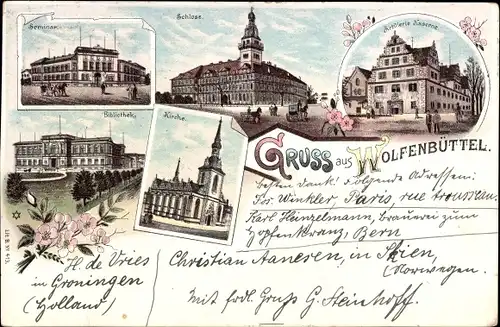 Seminar.
Schloss.
Artillerie Kaserne.
Bibliothek.
Kirche.
GRUSS aus WOLFENBÜTTEL.
besten Dank! Folgende Adressen:
Jos. Winkler, Paris, rue trousseau.
Karl Heinzelmann, Brauerei zum
Hopfenkranz, Bern
H. de Vries
in Groningen
(Holland)
Christian Aaneren, in Skien,
(Norwegen.
Mit frdl. Gruß G. Steinhoff.